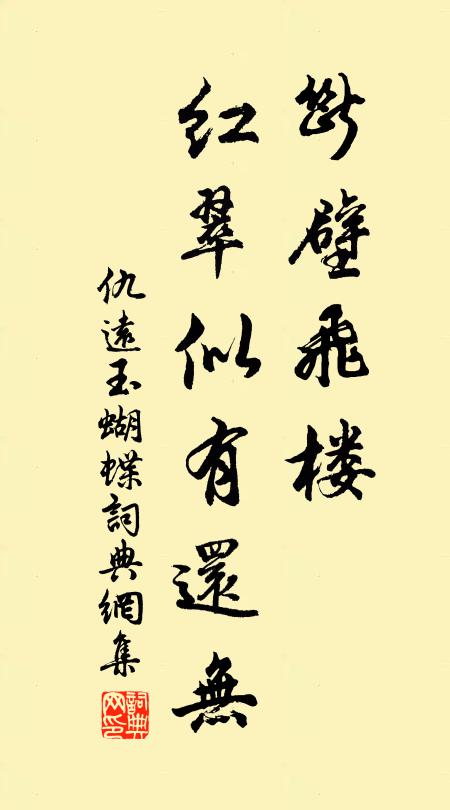 断壁飛楼
紅翠似有還無
仇遠玉蝴蝶詞典網集
詞典网印